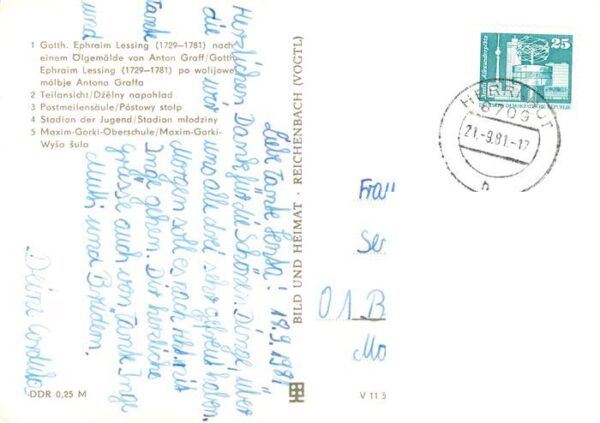 1 Gotth. Ephraim Lessing (1729–1781) nach
einem Ölgemälde von Anton Graff/Gotth.
Ephraim Lessing (1729–1781) po wolijowej
mólbje Antona Graffa
2 Teilansicht/Dźělny napohlad
3 Postmeilensäule/Póstowy stołp
4 Stadion der Jugend/Stadion młodźiny
5 Maxim-Gorki-Oberschule/Maxim-Gorki-
Wyša šula
DDR 0,25 M
Liebe Tante ! 19.9.1981
Herzlichen Dank für die Schönen Dinge, über
die wir uns alle drei sehr gefreut haben.
Morgen soll es nach mit
Tante
Inge gehen. Dir herzliche
Grüsse auch von Tante Inge
Mutti und Brüdern.
Deine Cordula
BILD UND HEIMAT · REICHENBACH (VOGTL)
V 11 5
25
HERRNHUT
8709
21.-9.81.-17
b
Frau
Ser
01B
Mo